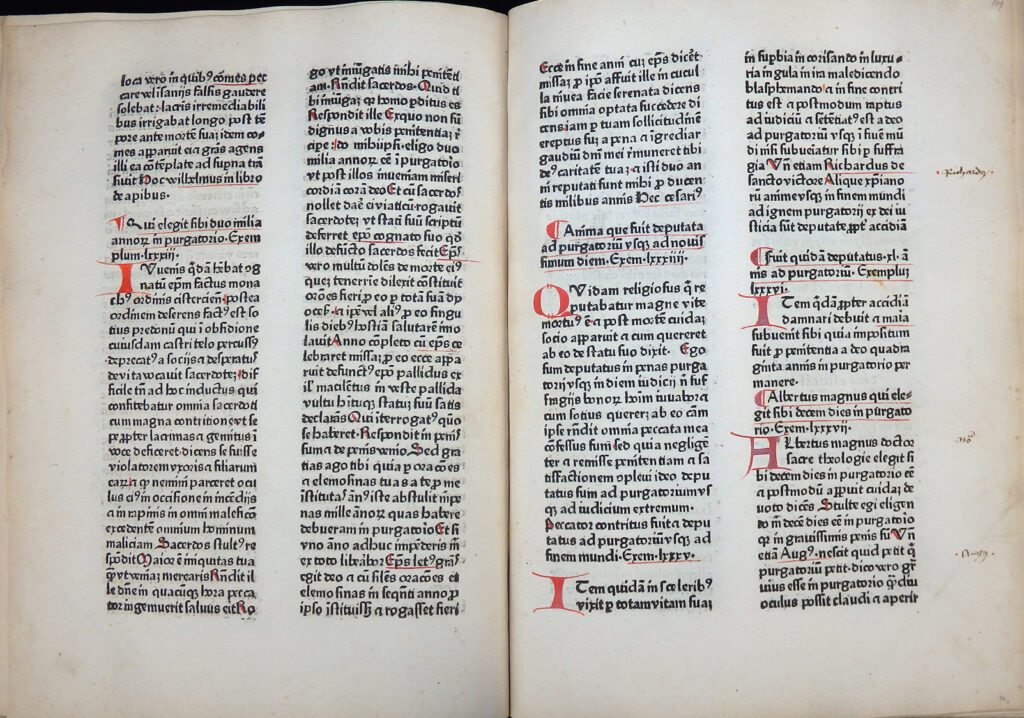 loca vero in quibꝰ comes pec
care vel sanijs falsis gaudere
solebat: lacrīs irremediabili
bus irrigabat longo post tē
pore ante mortē suaꝫ idem co-
mes apparuit ei a grās agens
illi ea cōtēplate ad supna trā
sivit Hoc wilhelmus in libro
de apibus.
Qui elegit sibi duo milia
annoꝝ in purgatorio. Exem
plum. lxxxiij.
Iuvenis qdā
natū epm factus mona
chꝰ ordinis cistercien postea
ordinem deserens factꝰ est so
tius predonū qui ī obsidione
cuiusdam castri telo percussꝰ
deprecatꝰ a socijs a desperatꝰ
de vita vocavit sacerdoteꝫ dif
ficile tn̄ ad hoc inductus qui
confitebatur omnia sacerdoti
cum magna contritione vt se
pe ꝓpter lacrimas a genitus ī
voce deficeret. dicens se fuisse
violatorem vxoris a filiarum
earꝫ a ꝙ nemini parceret ocu
lus eiꝰ in occisione in incēdijs
a in rapinis in omni maleficō
excedentē omnium hominum
maliciam Sacerdos stultꝰ re
spōdit Maior ē iniquitas tua
ꝙ vt veniaꝫ merearis Rñdit il
le dñe in quacūqꝫ hora pecca
tor ingemuerit salvus erit Ro
go vt iniūgatis mihi penitēti
am. Rñdit sacerdos. Quid ti
bi iniūgaꝫ qr homo pditus es
Respondit ille Ex quo non sū
dignus a vobis penitentiaꝫ rē
cipe: do mihi ipsi. eligo duo
milia annoꝝ eē ī purgatorio
vt post illos inveniam miseri
cordiā corā deo Et cū sacerdos
nollet dare ei viaticū rogavit
sacerdoteꝫ vt statū suū scriptū
deferret epo cognato suo qd
illo defūcto sacerdos fecit Eps
vero multū dolēs de morte eiꝰ
queꝫ tenerrie dilexit cōstituit
orōes fieri ꝓ eo p totā suā dyo
ocesꝫ a ipe vel aliꝰ ꝓ eo singu
lis diebꝰ hostiā salutarē īmo
lavit Anno cōpleto cū eps ce
lebraret missaꝫ ꝓ eo ecce appa
ruit defunctꝰ epo pallidus ex
ilꝫ macilētus in veste pallida
vultu hituqꝫ statuꝫ suū satis
declarās Qui ĩterrogatꝰ quō
se haberet. Respondit in penis
sum a de penis venio. Sed gra
tias ago tibi quia p oracōes
a elemosinas tuas a te p me
īstitutaꝫ anꝰ iste abstulit ī penis
mille annoꝝ quas habere
debueram in purgatorio Et si
vno āno adhuc impēderis mi
ex toto liberabor Eps letꝰ grās
egit deo a cū siles oracōes et
elemosinas in seqnti anno ꝓ
ipso īstituissꝫ a rogasset fieri
Ecce in fine anni cuꝫ eps dicēt
missaꝫ ꝓ ipō affuit ille in cucul
la nivea facie serenata dicens
sibi omnia optata succedere di
cens iam p tuam sollicitudinē
ereptus sum a pena a īgrediar
gaudiū dni mei remuneret tibi
deꝰ caritatē tuaꝫ a isti duo an
ni reputati sunt mihi ꝓ ducen
tis milibus annis Hec cesariꝰ
Anima que fuit deputata
ad purgatoriū vsqꝫ ad novis
simum diem. Exem. lxxxiiij.
Quidam religiosus q̄ re
putabatur magne vite
mortuꝰ ē a post mortē cuidaꝫ
socio apparuit a cum quereret
ab eo de statu suo dixit. Ego
sum deputatus in penas purga
torij vsqꝫ in diem iudicij nisi suf
fragijs bonoꝝ hoīm iuvabor a
cum sotius quereret ab eo cām
ipse rñdit omnia peccata mea
cōfessus sum sed quia negligē
ter a remisse penitentiam a sa
tisfactionem oplevi ideo depu
tatus sum ad purgatorium vs
qꝫ ad iudicium extremum.
Peccator contritus fuit a depu
tatus ad purgatoriū vsqꝫ ad
finem mundi. Exem. lxxxv.
Item quidā in scelerib9
vixit p totam vitam suaꝫ
in supbia in corisando in luxu-
ria in gula in ira maledicendo
blasphemando a in fine contri
tus est a postmodum raptus
ad iudiciū a sētētiatꝰ est a deo
ad purgatoriū vsqꝫ ī finē mū
di nisi subveniatur sibi p suffra
gia Vn̄ etiam Richardus de
sancto victore Alique xpiano
rū anime vsqꝫ in finem mundi
ad ignem purgatorij ex dei iu
sticia sunt deputate ꝓpt accidiā
Fuit quidā deputatus. xl. ā
nis ad purgatoriū. Exemplū
lxxxvi.
Item qdā ꝓpter accidiā
damnari debuit a maia
subvenit sibi quia impositum
fuit ꝓ penitentia a deo quadra
ginta annis in purgatorio per
manere.
Albertus magnus qui ele-
git sibi decem dies in purgato
rio. Exem. lxxxvij.
Albertus magnus doctor
sacre theologie elegit si
bi decem dies in purgatorio eē
a postmodū apparuit cuidaꝫ de
voto dicēs. Stulte egi eligen
do mi decē dies eē in purgatoīo
qr in gravissimis penis fui Vn̄
etiā Augꝰ. nescit quid petit q̄
purgatoriū petit. dico vero gra
vius esse in purgatorio q̄ diu
oculus possit claudi a aperir
Richardꝰ
Augꝰ